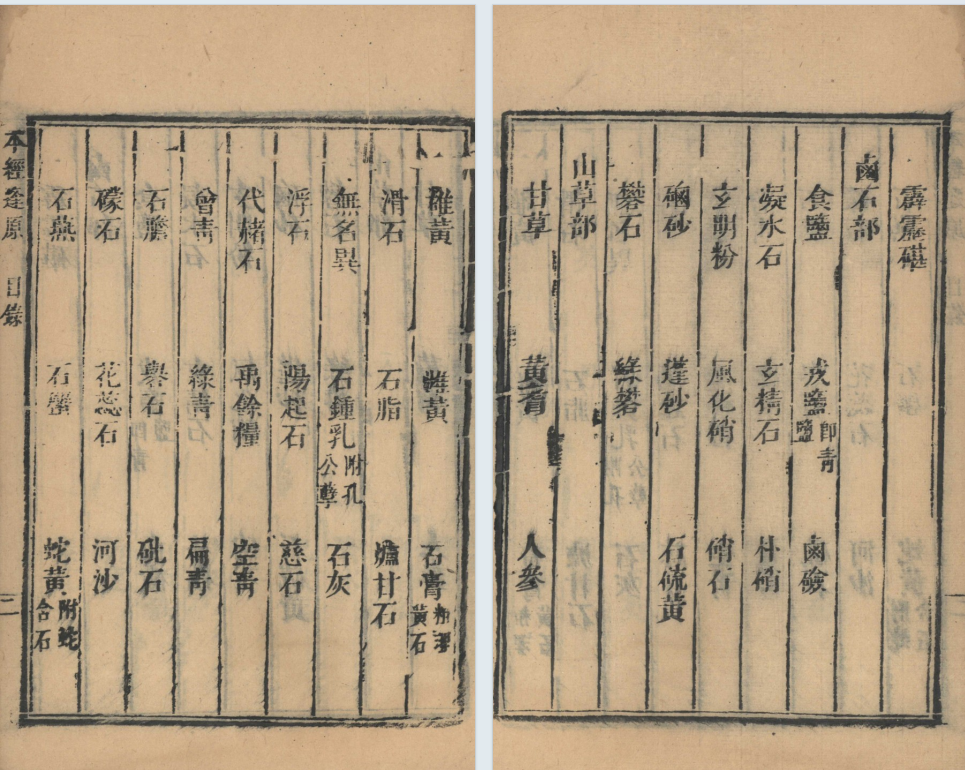 雄黃 雌黃 石膏 粗理黃石
滑石 石脂 爐甘石
無名異 石鍾乳 附孔公孽 石灰
浮石 陽起石 慈石
代赭石 禹餘糧 空青
曾青 綠青 扁青
石膽 礜石 砒石
礞石 花蕊石 河沙
石燕 石蟹 蛇黃 附蛇含石
本經逢原 目錄 二
霹靂碪
鹵石部
食鹽 戎鹽 即青鹽 鹵鹼
凝水石 玄精石 朴硝
玄明粉 風化硝 硝石
硇砂 蓬砂 石硫黃
礬石 綠礬
山草部
甘草 黃耆 人參